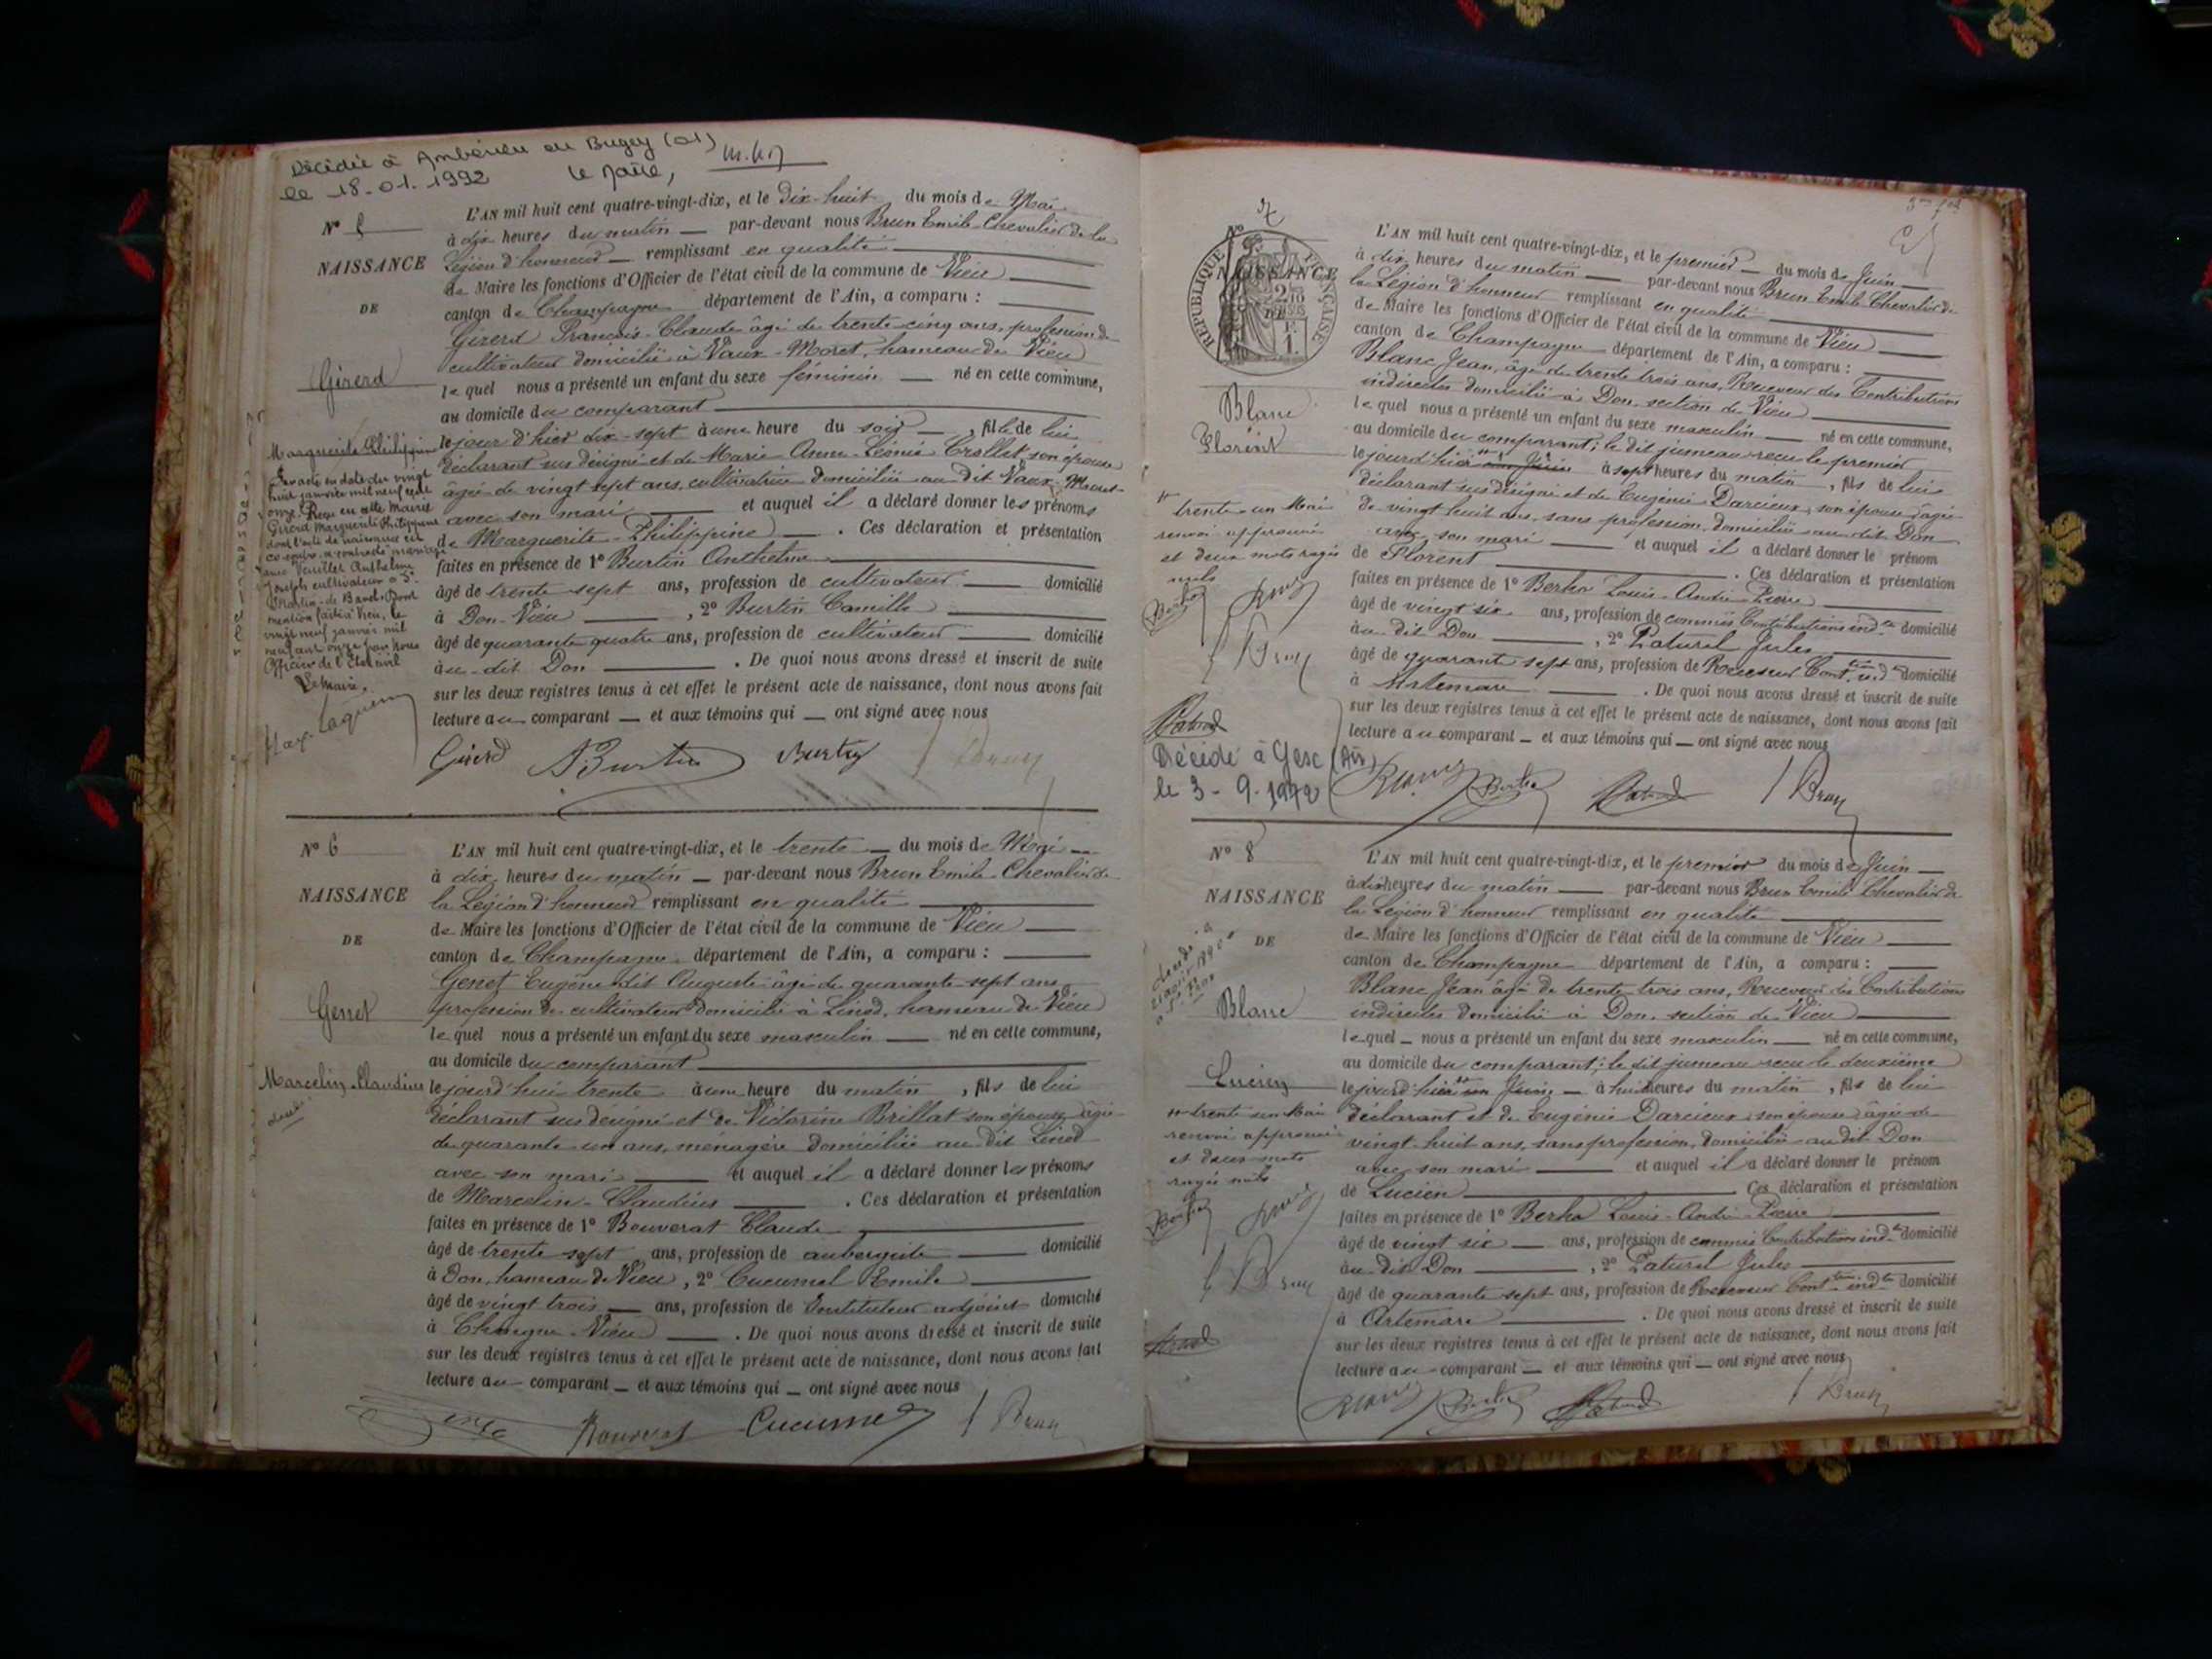 Décédée à Ambérieu en Bugey (01)
le 18-01-1992 le Maire,
L'AN mil huit cent quatre-vingt-dix, et le Dix-huit du mois de Mai
N° 5 à dix heures du matin — par-devant nous Brun Emile Chevalier de la
NAISSANCE Légion d'honneur — remplissant en qualité
de Maire les fonctions d'Officier de l'état civil de la commune de Vieu
DE canton de Champagne département de l'Ain, a comparu :
Girerd François-Claude âgé de trente cinq ans, profession de
cultivateur domicilié à Vaux-Moret, hameau de Vieu
Girerd lequel nous a présenté un enfant du sexe féminin — né en cette commune,
au domicile du comparant
Marguerite Philippine le jour d'hier dix-sept à une heure du soir —, fille de lui
déclarant sus désigné et de Marie Anne-Léonie Crollet son épouse
âgée de vingt sept ans, cultivatrice domiciliée au dit Vaux-Moret
avec son mari — et auquel il a déclaré donner les prénoms
de Marguerite-Philippine — . Ces déclaration et présentation
faites en présence de 1° Burtin Anthelme
âgé de trente sept ans, profession de cultivateur — domicilié
à Don-Vieu —, 2° Burtin Camille
âgé de quarante quatre ans, profession de cultivateur — domicilié
à au dit Don — . De quoi nous avons dressé et inscrit de suite
sur les deux registres tenus à cet effet le présent acte de naissance, dont nous avons fait
lecture au comparant — et aux témoins qui — ont signé avec nous
Par acte en date du vingt
huit janvier mil neuf cent
onze. Reçu en cette Mairie
Girerd Marguerite Philippine
dont l'acte de naissance est
ci-contre a contracté mariage
avec Vuillet Anthelme
Joseph cultivateur à St
Martin-de-Bavel. Dont
mention faite à Vieu, le
vingt neuf janvier mil
neuf cent onze par Nous
Officier de l'Etat civil
Le Maire,
Girerd A Burtin Burtin Brun
N° 6 L'AN mil huit cent quatre-vingt-dix, et le trente — du mois de Mai —
à dix heures du matin — par-devant nous Brun Emile Chevalier de
NAISSANCE la Légion d'honneur remplissant en qualité
de Maire les fonctions d'Officier de l'état civil de la commune de Vieu
DE canton de Champagne département de l'Ain, a comparu :
Genet Eugène dit Auguste âgé de quarante-sept ans
Genet profession de cultivateur domicilié à Linod, hameau de Vieu
lequel nous a présenté un enfant du sexe masculin — né en cette commune,
au domicile du comparant
Marcelin-Claudius le jourd'hui trente à une heure du matin, fils de lui
déclarant sus désigné et de Victorine Brillat son épouse âgée
de quarante un ans, ménagère domiciliée au dit Linod
avec son mari — et auquel il a déclaré donner les prénoms
de Marcelin-Claudius — . Ces déclaration et présentation
faites en présence de 1° Bouverat Claude
âgé de trente sept ans, profession de aubergiste — domicilié
à Don, hameau de Vieu, 2° Cucumel Emile
âgé de vingt trois — ans, profession de Instituteur adjoint domicilié
à Chongne-Vieu — . De quoi nous avons dressé et inscrit de suite
sur les deux registres tenus à cet effet le présent acte de naissance, dont nous avons fait
lecture au comparant — et aux témoins qui — ont signé avec nous
Bouverat Cucumel Brun
N° 7
RÉPUBLIQUE FRANÇAISE
L'AN mil huit cent quatre-vingt-dix, et le premier — du mois de Juin —
à dix heures du matin — par-devant nous Brun Emile Chevalier de
NAISSANCE la Légion d'honneur remplissant en qualité
de Maire les fonctions d'Officier de l'état civil de la commune de Vieu
DE canton de Champagne département de l'Ain, a comparu :
Blanc Jean, âgé de trente trois ans, Receveur des Contributions
indirectes domicilié à Don, section de Vieu
Blanc lequel nous a présenté un enfant du sexe masculin — né en cette commune,
Florent au domicile du comparant; le dit jumeau reçu le premier
le jourd'hier un Juin à sept heures du matin, fils de lui
déclarant sus désigné et de Eugénie Darcieux, son épouse âgée
de vingt huit ans, sans profession, domiciliée au dit Don
avec son mari — et auquel il a déclaré donner le prénom
de Florent — . Ces déclaration et présentation
faites en présence de 1° Berka Louis-André-Pierre
âgé de vingt six ans, profession de commis Contributions indtes domicilié
à au dit Don —, 2° Paturel Jules
âgé de quarante sept ans, profession de Receveur Conttions indtes domicilié
à Artemare — . De quoi nous avons dressé et inscrit de suite
sur les deux registres tenus à cet effet le présent acte de naissance, dont nous avons fait
lecture au comparant — et aux témoins qui — ont signé avec nous
trente un Mai
renvoi approuvé
et deux mots rayés
nuls
Brun
Décédé à Gex (Ain)
le 3-9-1972
Blanc Paturel Brun
N° 8 L'AN mil huit cent quatre-vingt-dix, et le premier du mois de Juin —
à dix heures du matin — par-devant nous Brun Emile Chevalier de
NAISSANCE la Légion d'honneur remplissant en qualité
de Maire les fonctions d'Officier de l'état civil de la commune de Vieu
DE canton de Champagne département de l'Ain, a comparu :
Blanc Jean âgé de trente trois ans, Receveur des Contributions
Blanc indirectes domicilié à Don, section de Vieu
lequel — nous a présenté un enfant du sexe masculin — né en cette commune,
au domicile du comparant; le dit jumeau reçu le deuxième
Lucien le jourd'hier un Juin — à huit heures du matin, fils de lui
déclarant et de Eugénie Darcieux son épouse âgée de
vingt-huit ans, sans profession, domiciliée au dit Don
avec son mari — et auquel il a déclaré donner le prénom
de Lucien — . Ces déclaration et présentation
faites en présence de 1° Berka Louis-André-Pierre
âgé de vingt six — ans, profession de commis Contributions indtes domicilié
à au dit Don —, 2° Paturel Jules
âgé de quarante sept ans, profession de Receveur Conttions indtes domicilié
à Artemare — . De quoi nous avons dressé et inscrit de suite
sur les deux registres tenus à cet effet le présent acte de naissance, dont nous avons fait
lecture au comparant — et aux témoins qui — ont signé avec nous
trente un Mai
renvoi approuvé
et deux mots
rayés nuls
Brun
Blanc Paturel Brun